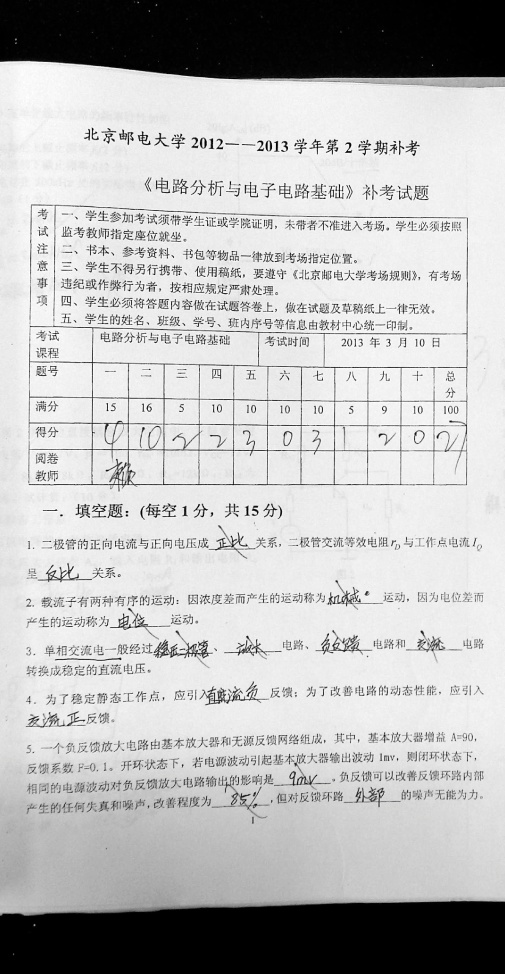 北京邮电大学 2012——2013 学年第 2 学期补考
《电路分析与电子电路基础》补考试题
考试注意事项
一、学生参加考试须带学生证或学院证明，未带者不准进入考场。学生必须按照
监考教师指定座位就坐。
二、书本、参考资料、书包等物品一律放到考场指定位置。
三、学生不得另行携带、使用稿纸，要遵守《北京邮电大学考场规则》，有考场
违纪或作弊行为者，按相应规定严肃处理。
四、学生必须将答题内容做在试题答卷上，做在试题及草稿纸上一律无效。
五、学生的姓名、班级、学号、班内序号等信息由教材中心统一印制。
考试课程 电路分析与电子电路基础 考试时间 2013 年 3 月 10 日
题号 一 二 三 四 五 六 七 八 九 十 总分
满分 15 16 5 10 10 10 10 5 9 10 100
得分 4 10 2 2 3 0 3 1 2 0 27
阅卷教师
一．填空题：(每空 1 分，共 15 分)
1. 二极管的正向电流与正向电压成 正比 关系，二极管交流等效电阻 rD 与工作点电流 IQ
是 反比 关系。
2. 载流子有两种有序的运动：因浓度差而产生的运动称为 机械 运动，因为电位差而
产生的运动称为 电位 运动。
3．单相交流电一般经过 稳压二极管 、 放大 电路、 负反馈 电路和 交流 电路
转换成稳定的直流电压。
4．为了稳定静态工作点，应引入 直流负 反馈；为了改善电路的动态性能，应引入
交流正 反馈。
5. 一个负反馈放大电路由基本放大器和无源反馈网络组成，其中，基本放大器增益 A=90，
反馈系数 F=0.1。开环状态下，若电源波动引起基本放大器输出波动 1mv，则闭环状态下，
相同的电源波动对负反馈放大电路输出的影响是 9mv 。负反馈可以改善反馈环路内部
产生的任何失真和噪声，改善程度为 85% ，但对反馈环路 外部 的噪声无能为力。
1